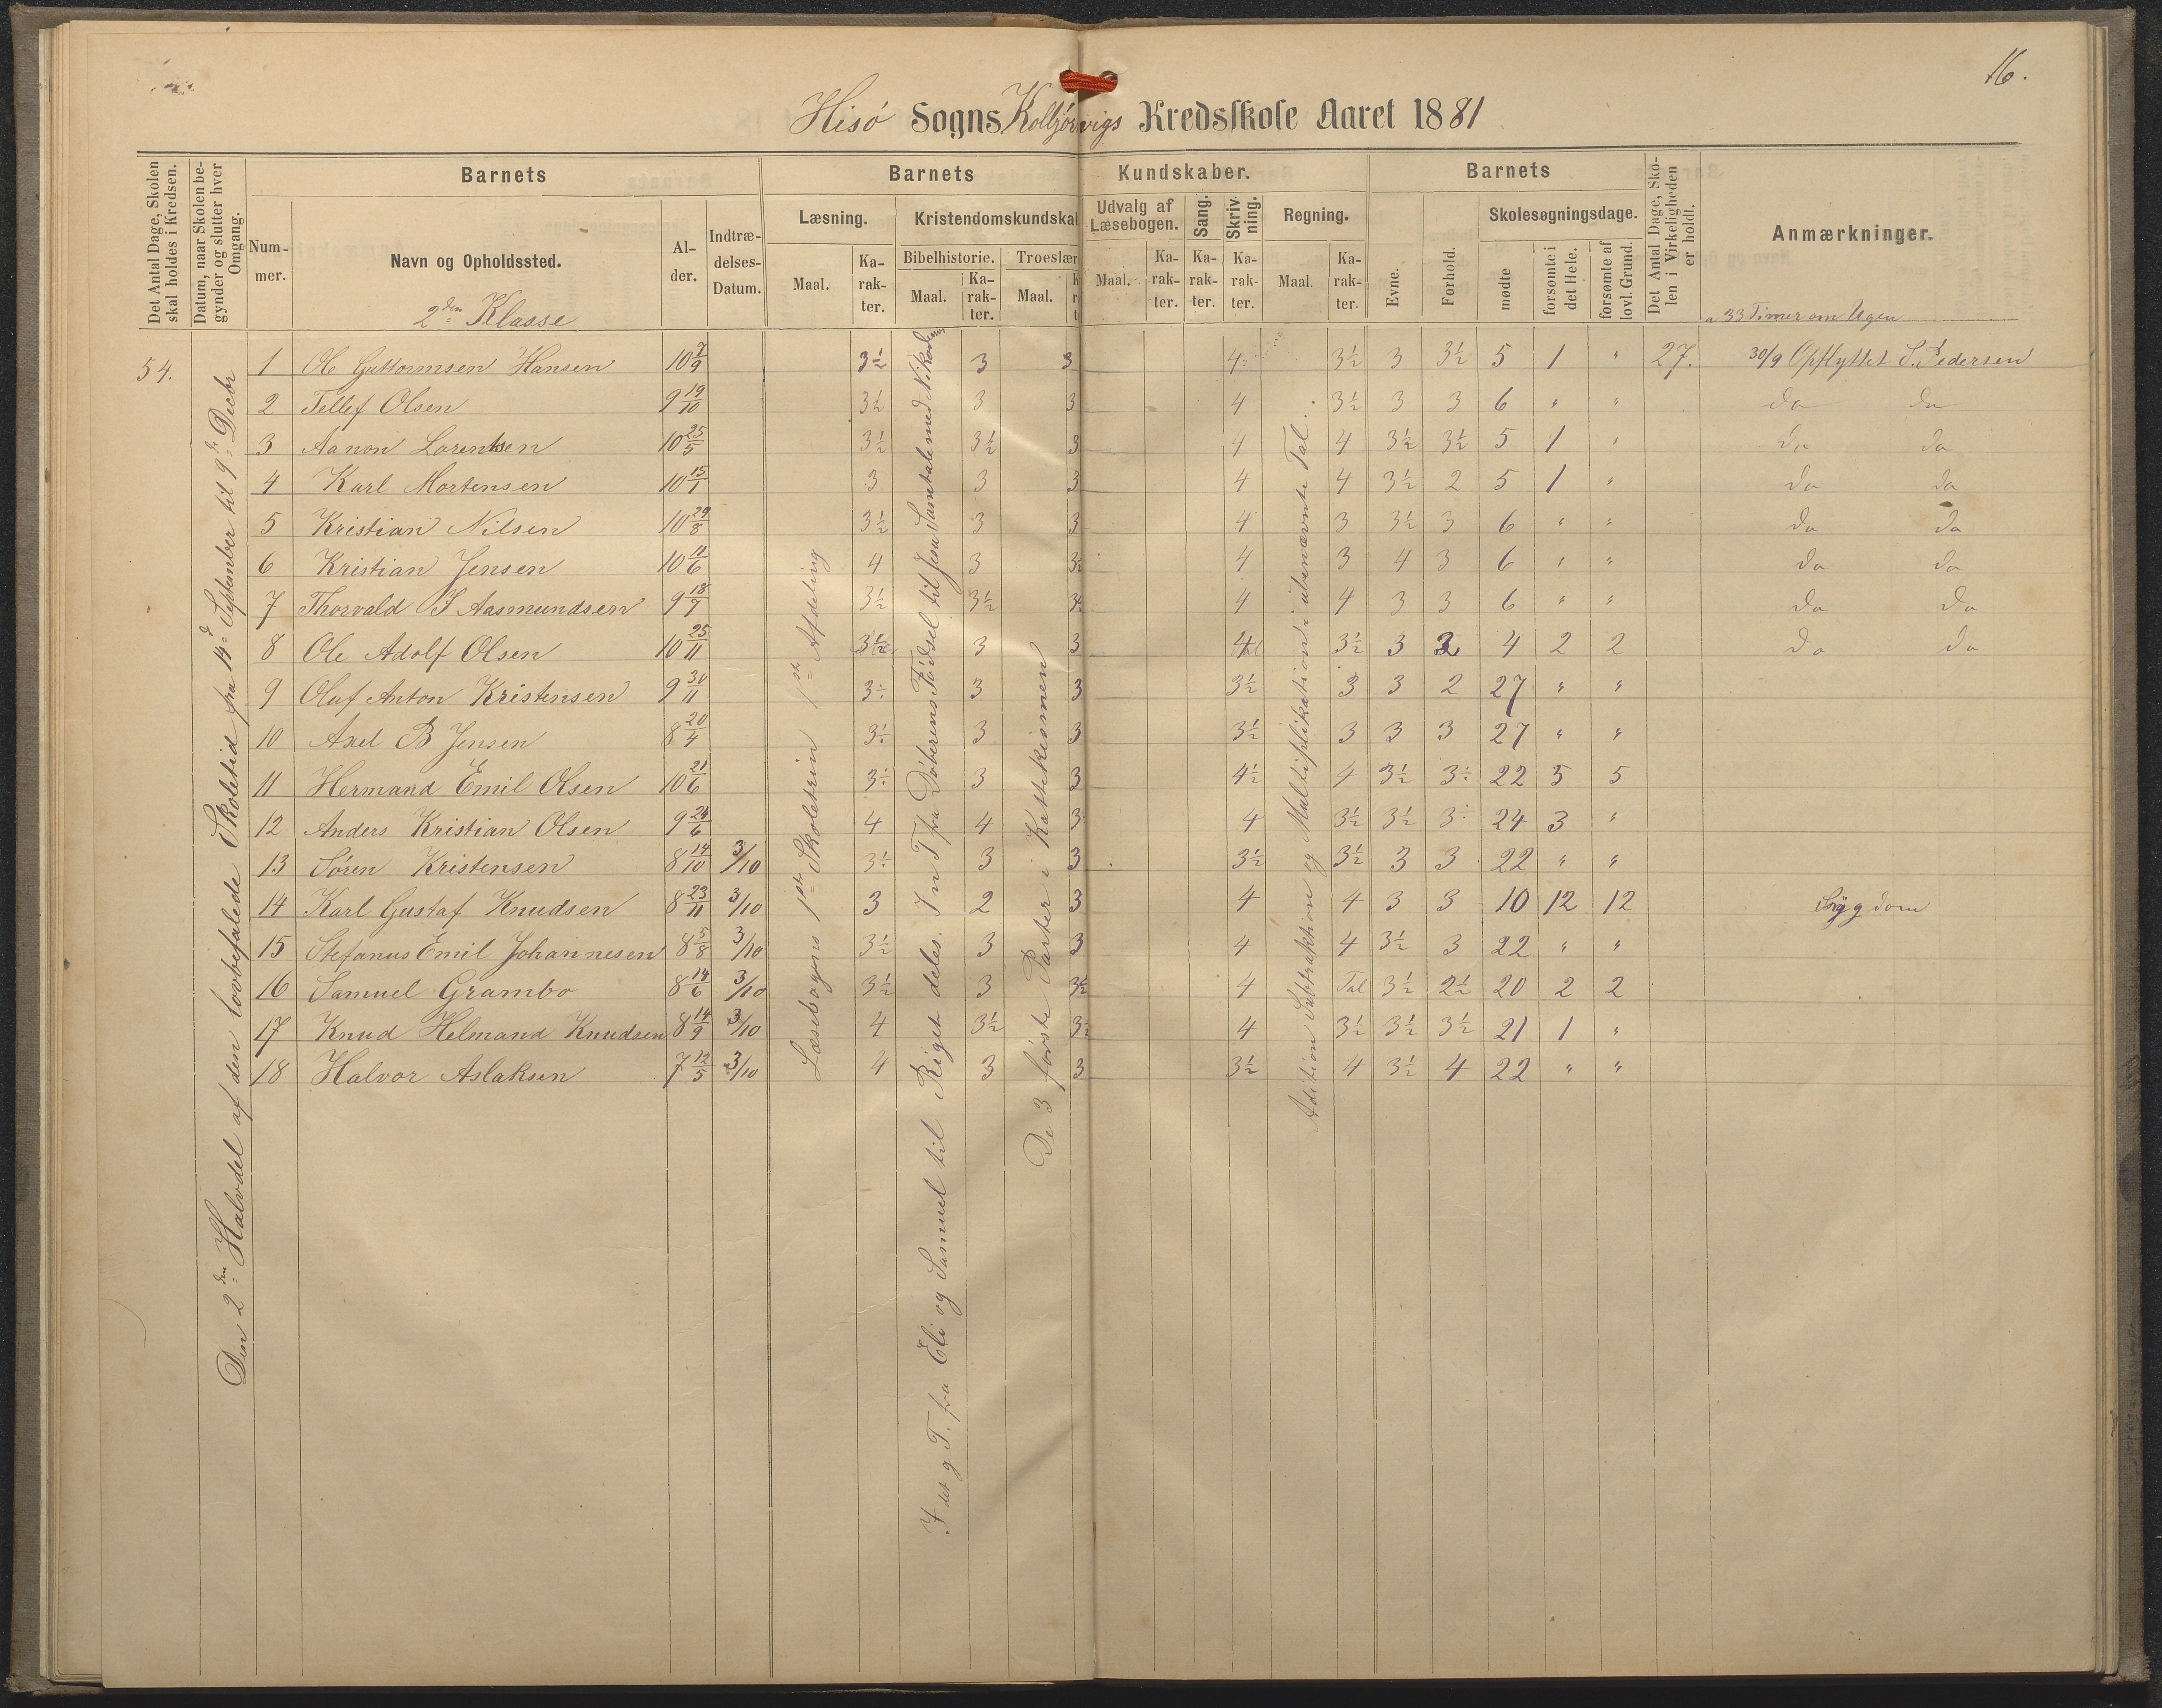 16.
Hisö Sogns Kolbjörnvigs Kredsskole Aaret 1881
Det Antal Dage, Skolen skal holdes i Kredsen.
Datum, naar Skolen begynder og slutter hver Omgang.
Barnets
Nummer.
Navn og Opholdssted.
2den Klasse
Alder.
Indtrædelses-Datum.
Barnets Kundskaber.
Læsning.
Maal.
Karakter.
Kristendomskundskab
Bibelhistorie.
Maal.
Karakter.
Troeslær
Maal.
Udvalg af Læsebogen.
Maal.
Karakter.
Sang.
Karakter.
Skrivning.
Karakter.
Regning.
Maal.
Karakter.
Barnets
Evne.
Forhold.
Skolesøgningsdage.
mødte
forsømte i det Hele.
forsømte af lovl. Grund.
Det Antal Dage, Skolen i Virkeligheden er holdt.
Anmærkninger.
a 33 Timer om Ugen
54.
Den 2den Halvdel af den lovbefalede Skoletid fra 14d September til 9de Decbr
Læsebogens 1ste Skoletrin 1ste Afdeling
I det g. T. fra Eli og Samuel til Riget deles. I n T fra Döberens Födsel til Jesu Samtale med Nikodemus
De 3 første Parter i Kattekismen
Adition Subtraktion og Multiplikation i ubenævnte Tal.
1 Ole Guttormsen Hansen 10 7/9 3½ 3 3 4 3½ 3 3½ 5 1 " 27. 30/9 Opflyttet S. Pedersen
2 Tellef Olsen 9 19/10 3½ 3 3 4 3½ 3 3 6 " " do do
3 Aanon Lorentsen 10 25/5 3½ 3½ 3 4 4 3½ 3½ 5 1 " do do
4 Karl Mortensen 10 15/1 3 3 3 4 4 3½ 2 5 1 " do do
5 Kristian Nilsen 10 29/8 3½ 3 3 4 3 3½ 3 6 " " do do
6 Kristian Jensen 10 11/6 4 3 3½ 4 3 4 3 6 " " do do
7 Thorvald S Aasmundsen 9 18/7 3½ 3½ 3½ 4 4 3 3 6 " " do do
8 Ole Adolf Olsen 10 25/11 3½ 3 3 4 3½ 3 3 4 2 2 do do
9 Oluf Anton Kristensen 9 30/11 3½ 3 3 3½ 3 3 2 27 " "
10 Axel B Jensen 8 20/4 3½ 3 3 3½ 3 3 3 27 " "
11 Hermand Emil Olsen 10 21/6 3½ 3 3 4½ 4 3½ 3½ 22 5 5
12 Anders Kristian Olsen 9 24/6 4 4 3 4 3½ 3½ 3½ 24 3 "
13 Sören Kristensen 8 14/10 3/10 3½ 3 3 3½ 3½ 3 3 22 " "
14 Karl Gustaf Knudsen 8 23/11 3/10 3 2 3 4 4 3 3 10 12 12 Sygdom
15 Stefanus Emil Johannesen 8 5/8 3/10 3½ 3 3 4 4 3½ 3 22 " "
16 Samuel Grambo 8 14/6 3/10 3½ 3 3½ 4 Tal 3½ 2½ 20 2 2
17 Knud Helmand Knudsen 8 14/9 3/10 4 3½ 3½ 4 3½ 3½ 3½ 21 1 "
18 Halvor Aslaksen 7 12/5 3/10 4 3 3 3½ 4 3½ 4 22 " "